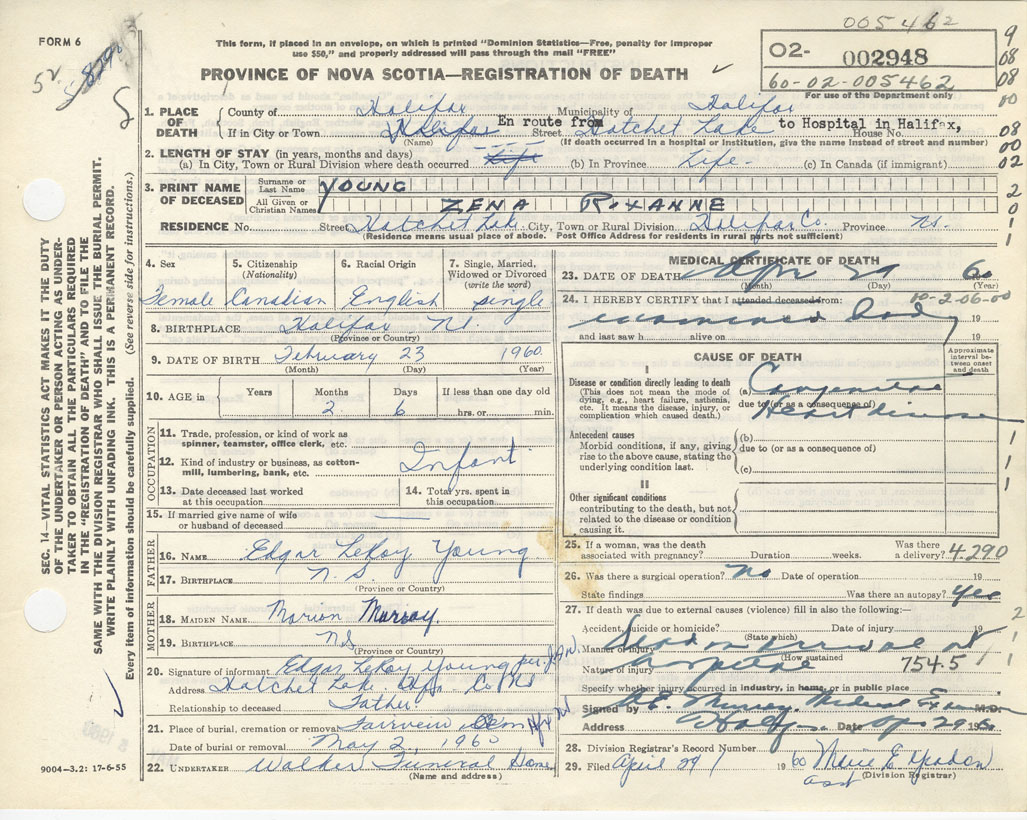 005462
FORM 6
This form, if placed in an envelope, on which is printed "Dominion Statistics—Free, penalty for improper
use $50," and properly addressed will pass through the mail "FREE"
PROVINCE OF NOVA SCOTIA—REGISTRATION OF DEATH
O2- 002948
60-02-005462
For use of the Department only
9
08
08
00
08
00
02
2
0
1
1
1. PLACE OF DEATH
County of Halifax Municipality of Halifax
If in City or Town Halifax En route from Street Hatchet Lake to Hospital in Halifax, House No.
(Name) (If death occurred in a hospital or institution, give the name instead of street and number)
2. LENGTH OF STAY (in years, months and days)
(a) In City, Town or Rural Division where death occurred Life (b) In Province Life- (c) In Canada (if immigrant)
3. PRINT NAME OF DECEASED
Surname or Last Name YOUNG
All Given or Christian Names ZENA ROXANNE
RESIDENCE No. Street Hatchet Lake City, Town or Rural Division Halifax Co. Province NS.
(Residence means usual place of abode. Post Office Address for residents in rural parts not sufficient)
4. Sex 5. Citizenship (Nationality) 6. Racial Origin 7. Single, Married, Widowed or Divorced (write the word)
Female Canadian English single
8. BIRTHPLACE Halifax NS.
(Province or Country)
9. DATE OF BIRTH February 23 1960
(Month) (Day) (Year)
10. AGE in Years Months Days If less than one day old
2 6 hrs. or min.
OCCUPATION
11. Trade, profession, or kind of work as spinner, teamster, office clerk, etc.
12. Kind of industry or business, as cotton-mill, lumbering, bank, etc. Infant
13. Date deceased last worked at this occupation 14. Total yrs. spent in this occupation
15. If married give name of wife or husband of deceased
FATHER
16. NAME Edgar LeRoy Young
17. BIRTHPLACE N.S.
(Province or Country)
MOTHER
18. MAIDEN NAME Marion
19. BIRTHPLACE NS.
(Province or Country)
20. Signature of informant Edgar LeRoy Young per
Address Hatchet Lake Co NS
Relationship to deceased Father
21. Place of burial, cremation or removal Fairview Cem
Date of burial or removal May 2, 1960
22. UNDERTAKER Walker Funeral Home
(Name and address)
MEDICAL CERTIFICATE OF DEATH
23. DATE OF DEATH Apr 29 60
(Month) (Day) (Year)
24. I HEREBY CERTIFY that I attended deceased from: 10-2-06-00
examined body 19
and last saw h alive on 19
CAUSE OF DEATH
Approximate interval between onset and death
I
Disease or condition directly leading to death
(This does not mean the mode of dying, e.g., heart failure, asthenia, etc. It means the disease, injury, or complication which caused death.)
(a) Congenital
due to (or as a consequence of)
Heart disease
Antecedent causes
Morbid conditions, if any, giving rise to the above cause, stating the underlying condition last.
(b)
due to (or as a consequence of)
(c)
II
Other significant conditions
contributing to the death, but not related to the disease or condition causing it.
1
1
1
25. If a woman, was the death associated with pregnancy? Duration weeks. Was there a delivery? 4.290
26. Was there a surgical operation? no Date of operation 19
State findings Was there an autopsy? yes
27. If death was due to external causes (violence) fill in also the following:—
Accident, suicide or homicide? Date of injury 19
(State which)
Manner of injury Dead on arrival at
(How sustained
Nature of injury hospital 754.5
Specify whether injury occurred in industry, in home, or in public place
Signed by Murray Medical M.D.
Address Date Ap 29 19
2
1
1
1
28. Division Registrar's Record Number
29. Filed April 29/ 1960
(Division Registrar)
9004-3.2: 17-6-55
SEC. 14—VITAL STATISTICS ACT MAKES IT THE DUTY
OF THE UNDERTAKER OR PERSON ACTING AS UNDER-
TAKER TO OBTAIN ALL THE PARTICULARS REQUIRED
IN THE "REGISTRATION OF DEATH" AND TO FILE THE
SAME WITH THE DIVISION REGISTRAR WHO SHALL ISSUE THE BURIAL PERMIT.
WRITE PLAINLY WITH UNFADING INK. THIS IS A PERMANENT RECORD.
Every item of information should be carefully supplied. (See reverse side for instructions.)